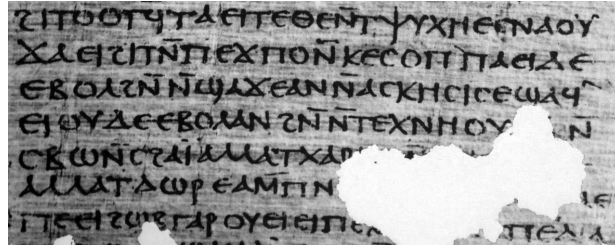 ϩⲓⲧⲟⲟⲧϥ ⲧⲁⲉⲓ ⲧⲉ ⲑⲉ ⲛ̄ⲧⲯⲩⲭⲏ ⲉⲥⲛⲁⲟⲩ
ϫⲁⲉⲓ ϩⲓⲧⲛ̄ ⲡⲉϫⲡⲟ ⲛ̄ⲕⲉⲥⲟⲡ ⲡⲁⲉⲓ ⲇⲉ
ⲉⲃⲟⲗ ϩⲛ̄ ⲛ̄ϣⲁϫⲉ ⲁⲛ ⲛ̄ⲁⲥⲕⲏⲥⲓⲥ ⲉϣⲁϥ
ⲉⲓ ⲟⲩⲇⲉ ⲉⲃⲟⲗ ⲁⲛ ϩⲛ̄ ⲛ̄ⲧⲉⲭⲛⲏ ⲟⲩ
ⲥⲃⲱ ⲛ̄ⲥϩⲁⲓ̈ ⲁⲗⲗⲁ ⲧⲭⲁⲣ
ⲁⲗⲗⲁ ⲧⲇⲱⲣⲉⲁ ⲙⲡⲛ
ⲡⲉⲉⲓϩⲱⲃ ⲅⲁⲣ